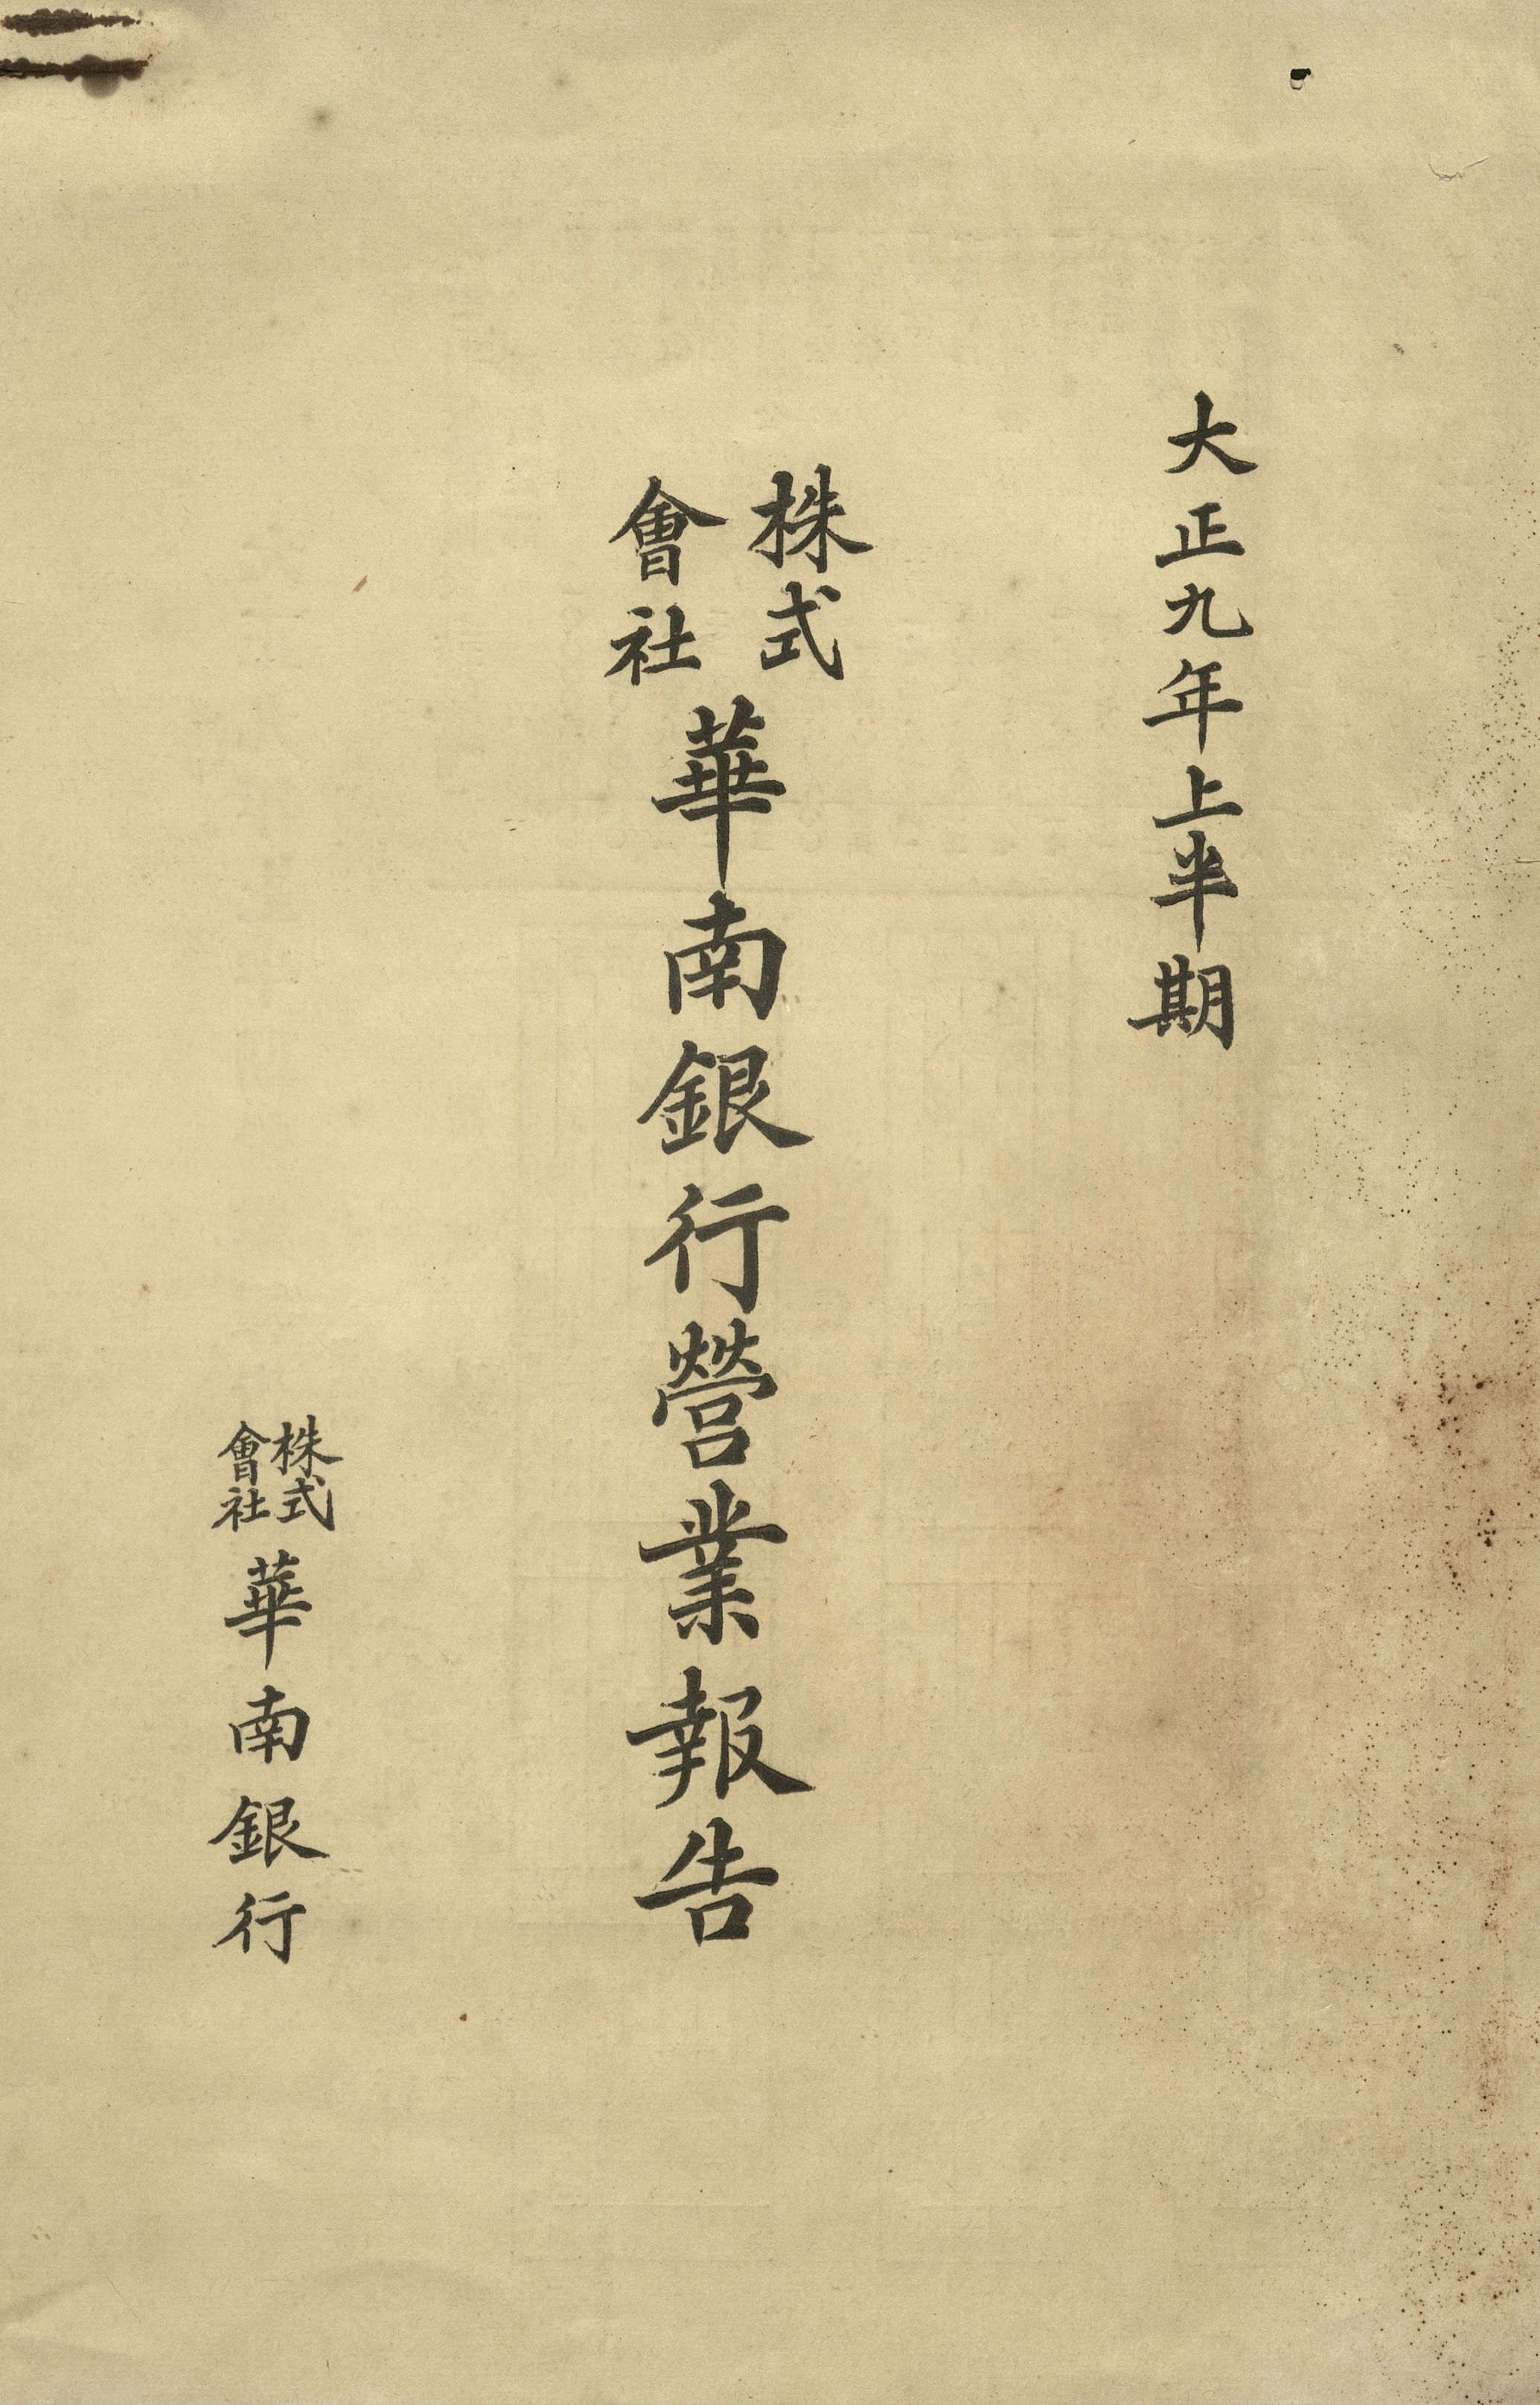 大正九年上半期
株式會社華南銀行營業報告
株式會社華南銀行